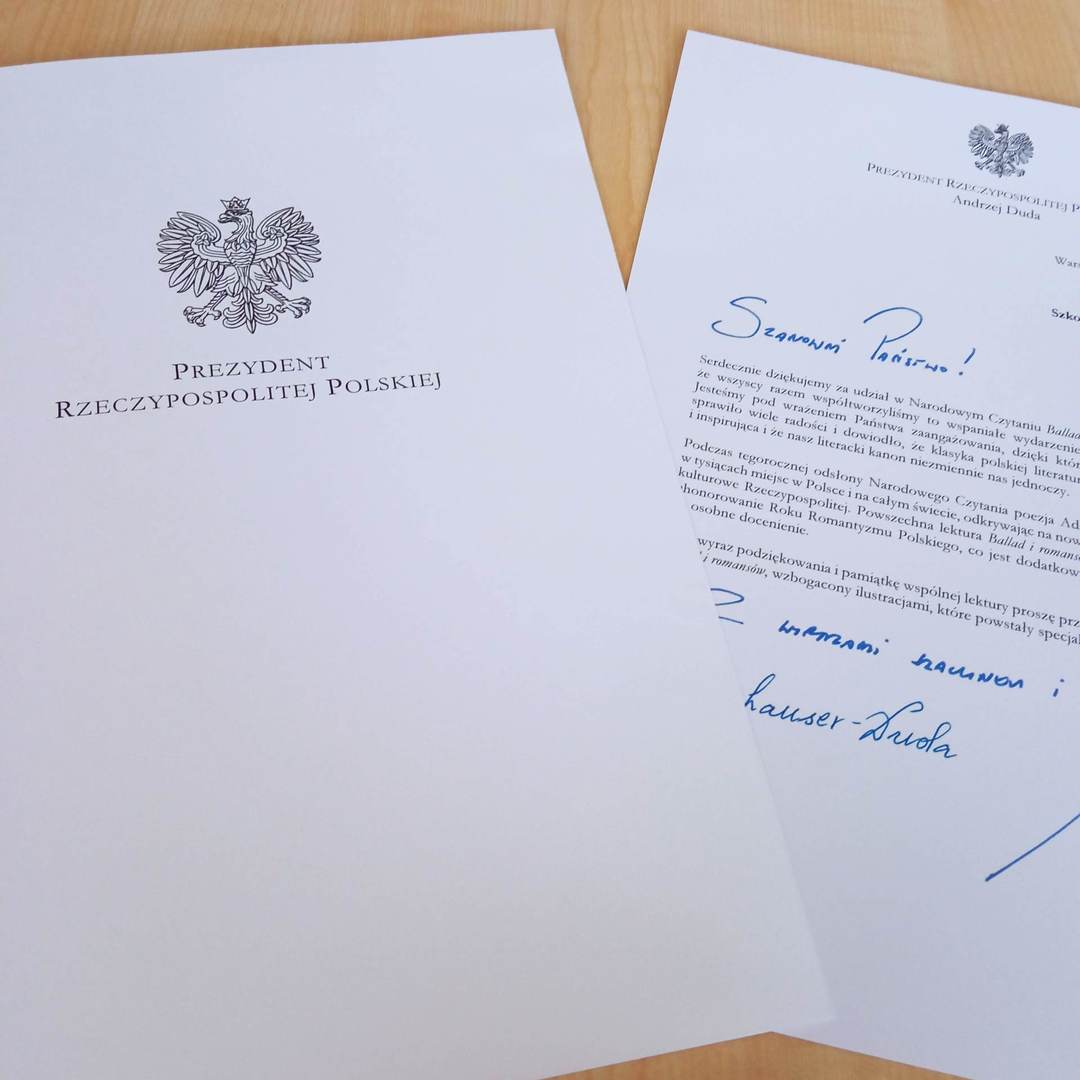 PREZYDENT
RZECZYPOSPOLITEJ POLSKIEJ
PREZYDENT RZECZYPOSPOLITEJ P
Andrzej Duda
Wars
Szko
Szanowni Państwo!
Serdecznie dziękujemy za udział w Narodowym Czytaniu Ballad
że wszyscy razem współtworzyliśmy to wspaniałe wydarzenie
Jesteśmy pod wrażeniem Państwa zaangażowania, dzięki któr
sprawiło wiele radości i dowiodło, że klasyka polskiej literatur
i inspirująca i że nasz literacki kanon niezmiennie nas jednoczy.
Podczas tegorocznej odsłony Narodowego Czytania poezja Ad
w tysiącach miejsc w Polsce i na całym świecie, odkrywając na now
kulturowe Rzeczypospolitej. Powszechna lektura Ballad i romansó
honorowanie Roku Romantyzmu Polskiego, co jest dodatkow
osobne docenienie.
wyraz podziękowania i pamiątkę wspólnej lektury proszę prz
i romansów, wzbogacony ilustracjami, które powstały specjal
Z wyrazami szacunku i
hauser-Duda